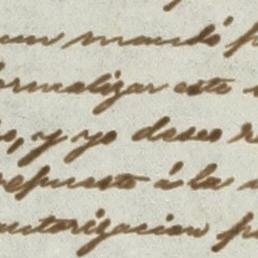 un mandó
ormalizar este
, y yo deseo
repuesto á la
autorizacion